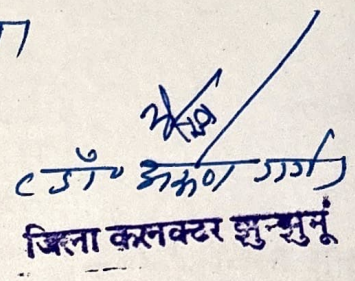 (डॉ० अरूण गर्ग)
जिला कलक्टर झुन्झुनूं